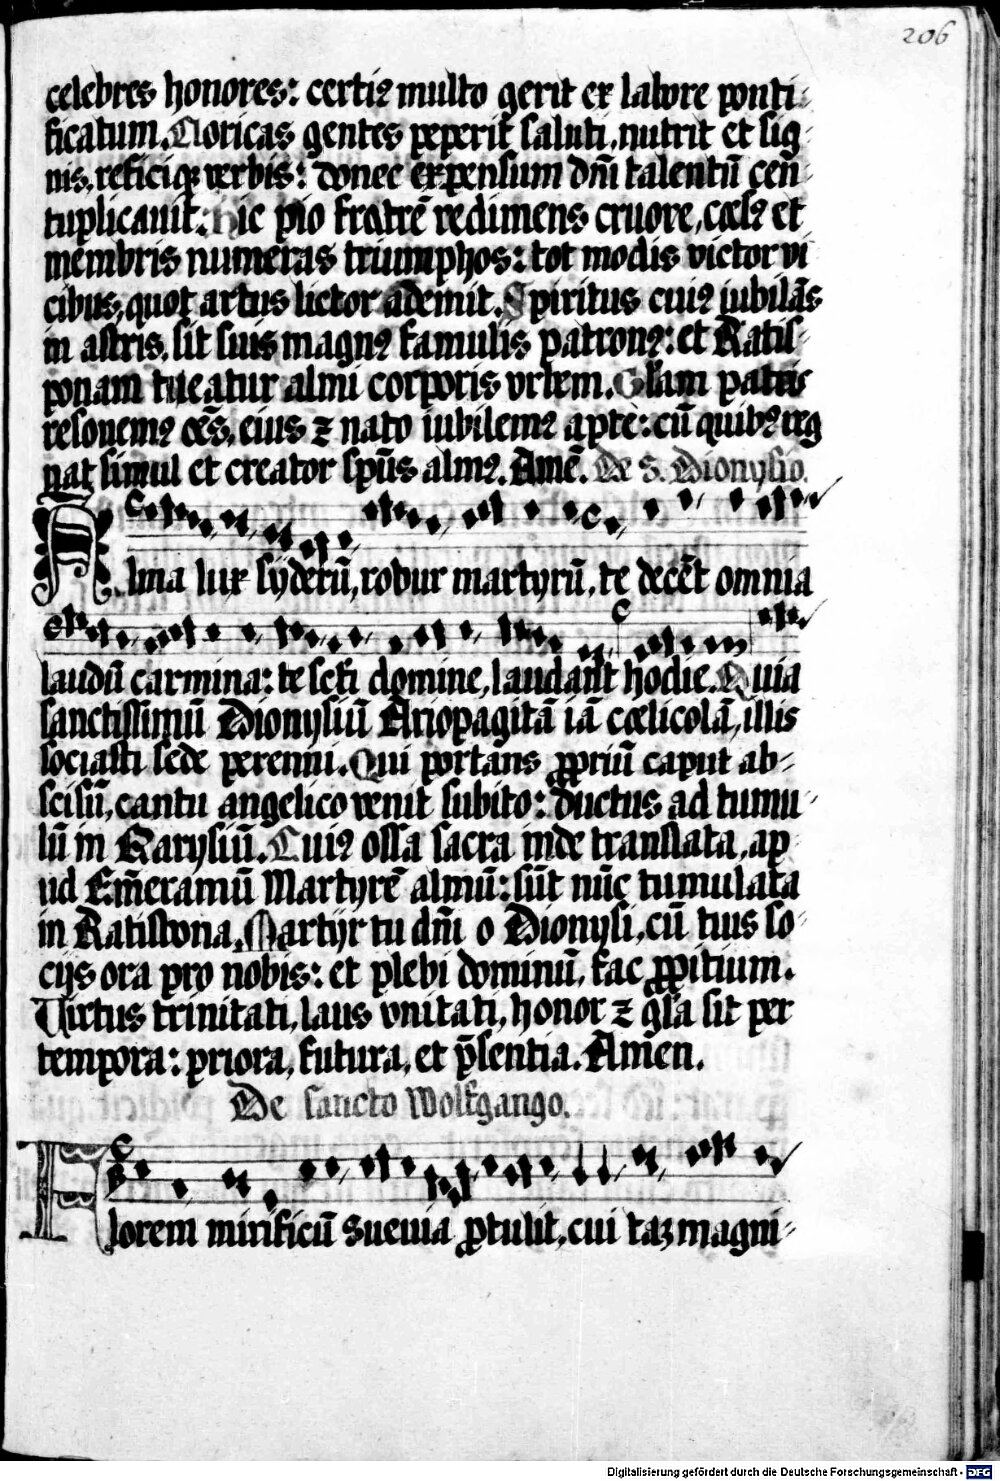 206
celebres honores: certiꝰ multo gerit ex labore ponti-
ficatum. Noricas gentes peperit saluti, nutrit et sig-
nis, reficiqꝫ verbis: donec expensum dn̄i talentū cen-
tuplicauit. Hic pio fratrē redimens cruore, cæsꝰ et
membris numeras triumphos: tot modis victor vi
cibus, quot artus lictor ademit. Spiritus cuiꝰ iubilās
in astris, sit suis magnꝰ famulis patronꝰ: et Ratis-
ponam tueatur almi corporis vrbem. Gl̄am patris
resonemꝰ oēs, eius ⁊ nato iubilemꝰ apte: cū quibꝰ reg
nat simul et creator sp̄us almꝰ. Amē. De S. Dionysio.
Alma lux syderū, robur martyrū, te decēt omnia
laudū carmina: te sc̄ti domine, laudant hodie. Quia
sanctissimū Dionysiū Ariopagitā iā cœlicolā, illis
sociasti sede perenni. Qui portans ꝓpriū caput ab-
scisū, cantu angelico venit subito: ductus ad tumu-
lū in Parysiū. Cuiꝰ ossa sacra inde translata, ap-
ud Em̄eramū Martyrē almū: sūt nūc tumulata
in Ratisbona. Martyr tu dn̄i o Dionysi, cū tuis so-
cijs ora pro nobis: et plebi dominū, fac ꝓpitium.
Virtus trinitati, laus vnitati, honor ⁊ gl̄a sit per
tempora: priora, futura, et p̄sentia. Amen.
De sancto Wolfgango.
Florem mirificū Sueuia ꝓtulit, cui taꝫ magni-
Digitalisierung gefördert durch die Deutsche Forschungsgemeinschaft - DFG